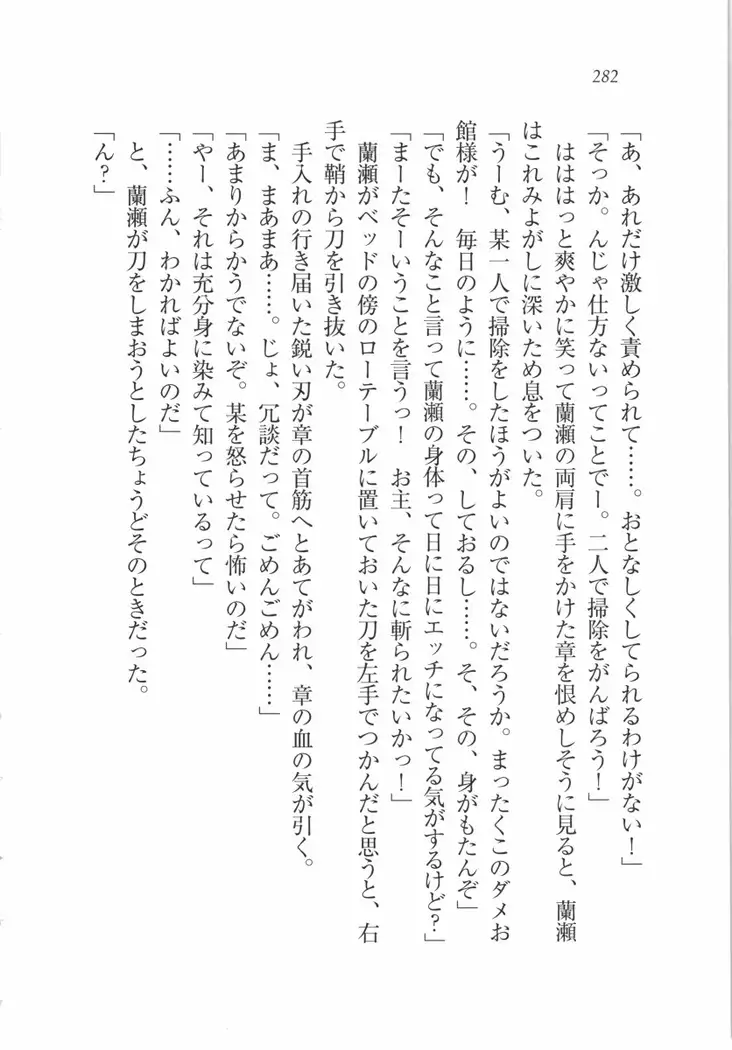 282
「あ、あれだけ激しく責められて……。おとなしくしてられるわけがない！」
「そっか。んじゃ仕方ないってことでー。二人で掃除をがんばろう！」
　はははっと爽やかに笑って蘭瀬の両肩に手をかけた章を恨めしそうに見ると、蘭瀬
はこれみよがしに深いため息をついた。
「うーむ、某一人で掃除をしたほうがよいのではないだろうか。まったくこのダメお
館様が！　毎日のように……。その、しておるし……。そ、その、身がもたんぞ」
「でも、そんなこと言って蘭瀬の身体って日に日にエッチになってる気がするけど？」
「まーたそーいうことを言うっ！　お主、そんなに斬られたいかっ！」
　蘭瀬がベッドの傍のローテーブルに置いておいた刀を左手でつかんだと思うと、右
手で鞘から刀を引き抜いた。
　手入れの行き届いた鋭い刃が章の首筋へとあてがわれ、章の血の気が引く。
「ま、まあまあ……。じょ、冗談だって。ごめんごめん……」
「あまりからかうでないぞ。某を怒らせたら怖いのだ」
「やー、それは充分身に染みて知っているって」
「……ふん、わかればよいのだ」
　と、蘭瀬が刀をしまおうとしたちょうどそのときだった。
「ん？」